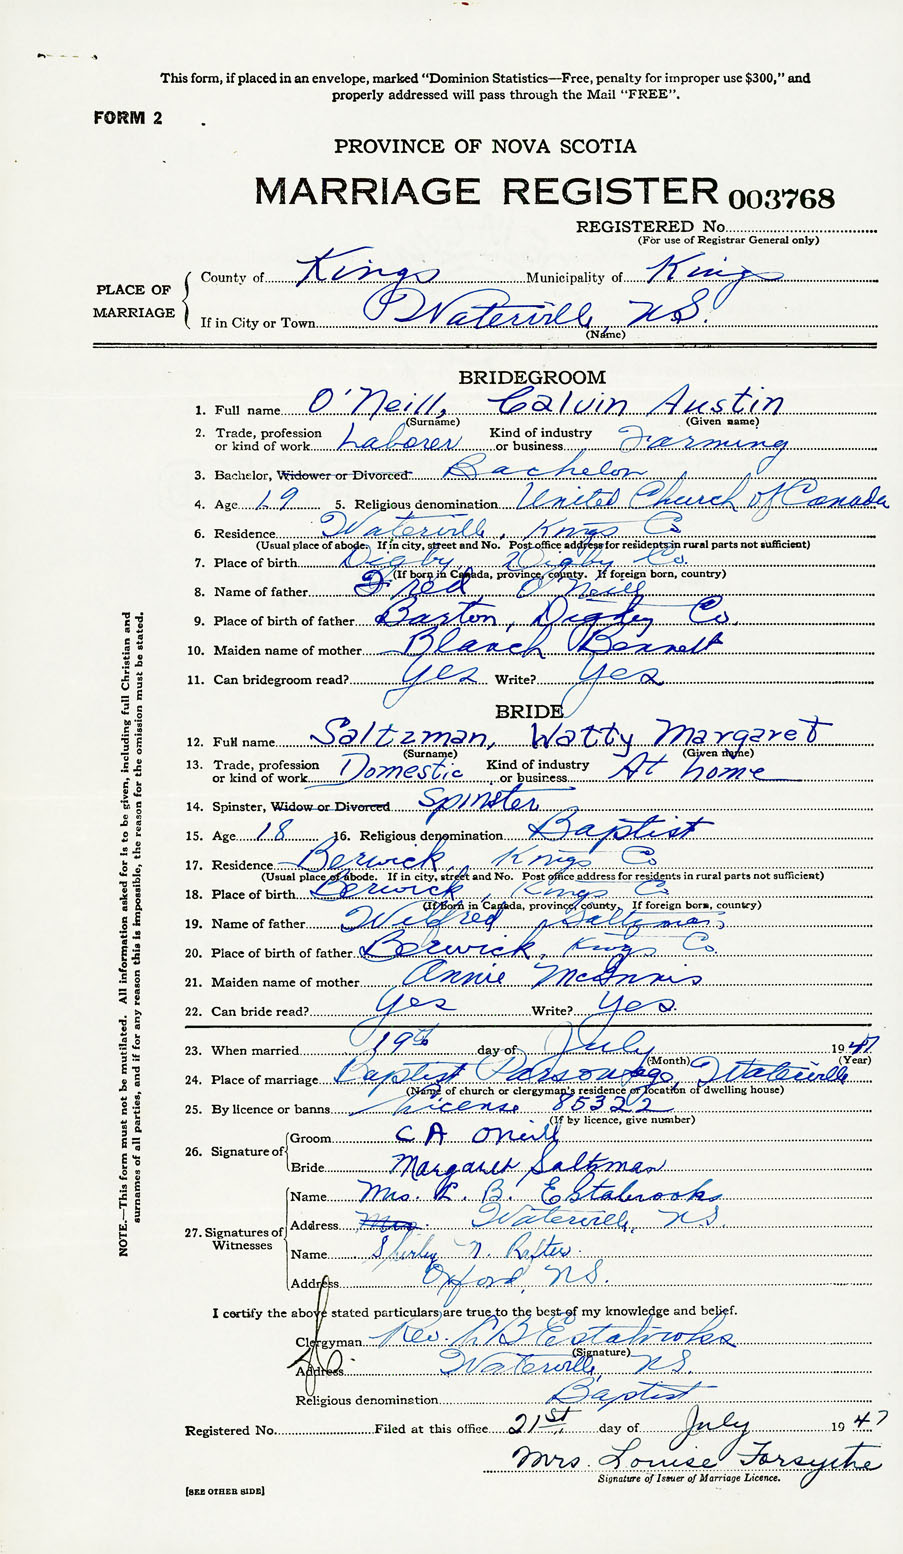 This form, if placed in an envelope, marked “Dominion Statistics—Free, penalty for improper use $300,” and
properly addressed will pass through the Mail “FREE”.
FORM 2
PROVINCE OF NOVA SCOTIA
MARRIAGE REGISTER 003768
REGISTERED No.
(For use of Registrar General only)
PLACE OF MARRIAGE
County of Kings Municipality of Kings
If in City or Town Waterville N.S.
(Name)
BRIDEGROOM
1. Full name O'Neill, Calvin Austin
(Surname) (Given name)
2. Trade, profession or kind of work Laborer Kind of industry or business Farming
3. Bachelor, Widower or Divorced Bachelor
4. Age 19 5. Religious denomination United Church of Canada
6. Residence Waterville, Kings Co
(Usual place of abode. If in city, street and No. Post office address for residents in rural parts not sufficient)
7. Place of birth Digby, Digby Co.
(If born in Canada, province, county. If foreign born, country)
8. Name of father Fred O'Neill
9. Place of birth of father Barton, Digby Co.
10. Maiden name of mother Blanch Bennett
11. Can bridegroom read? Yes Write? Yes
BRIDE
12. Full name Saltzman, Watty Margaret
(Surname) (Given name)
13. Trade, profession or kind of work Domestic Kind of industry or business At home
14. Spinster, Widow or Divorced Spinster
15. Age 18 16. Religious denomination Baptist
17. Residence Berwick, Kings Co
(Usual place of abode. If in city, street and No. Post office address for residents in rural parts not sufficient)
18. Place of birth Berwick, Kings Co
(If born in Canada, province, county. If foreign born, country)
19. Name of father Wilfred Saltzman
20. Place of birth of father Berwick, Kings Co.
21. Maiden name of mother Annie McInnis
22. Can bride read? Yes Write? Yes.
23. When married 19th day of July 1947
(Month) (Year)
24. Place of marriage Baptist Parsonage, Waterville
(Name of church or clergyman's residence or location of dwelling house)
25. By licence or banns License 85322
(If by licence, give number)
26. Signature of
Groom C A Oneill
Bride Margaret Saltzman
27. Signatures of Witnesses
Name Mrs. L. B. Estabrooks
Address Mrs. Waterville, N.S.
Name Shirley N.
Address Oxford, N.S.
I certify the above stated particulars are true to the best of my knowledge and belief.
Clergyman Rev. Estabrooks
(Signature)
Address Waterville, N.S.
Religious denomination Baptist
Registered No. Filed at this office 21st day of July 1947
Mrs. Louise Forsythe
Signature of Issuer of Marriage Licence.
[SEE OTHER SIDE]
NOTE.—This form must not be mutilated. All information asked for is to be given, including full Christian and
surnames of all parties, and if for any reason this is impossible, the reason for the omission must be stated.